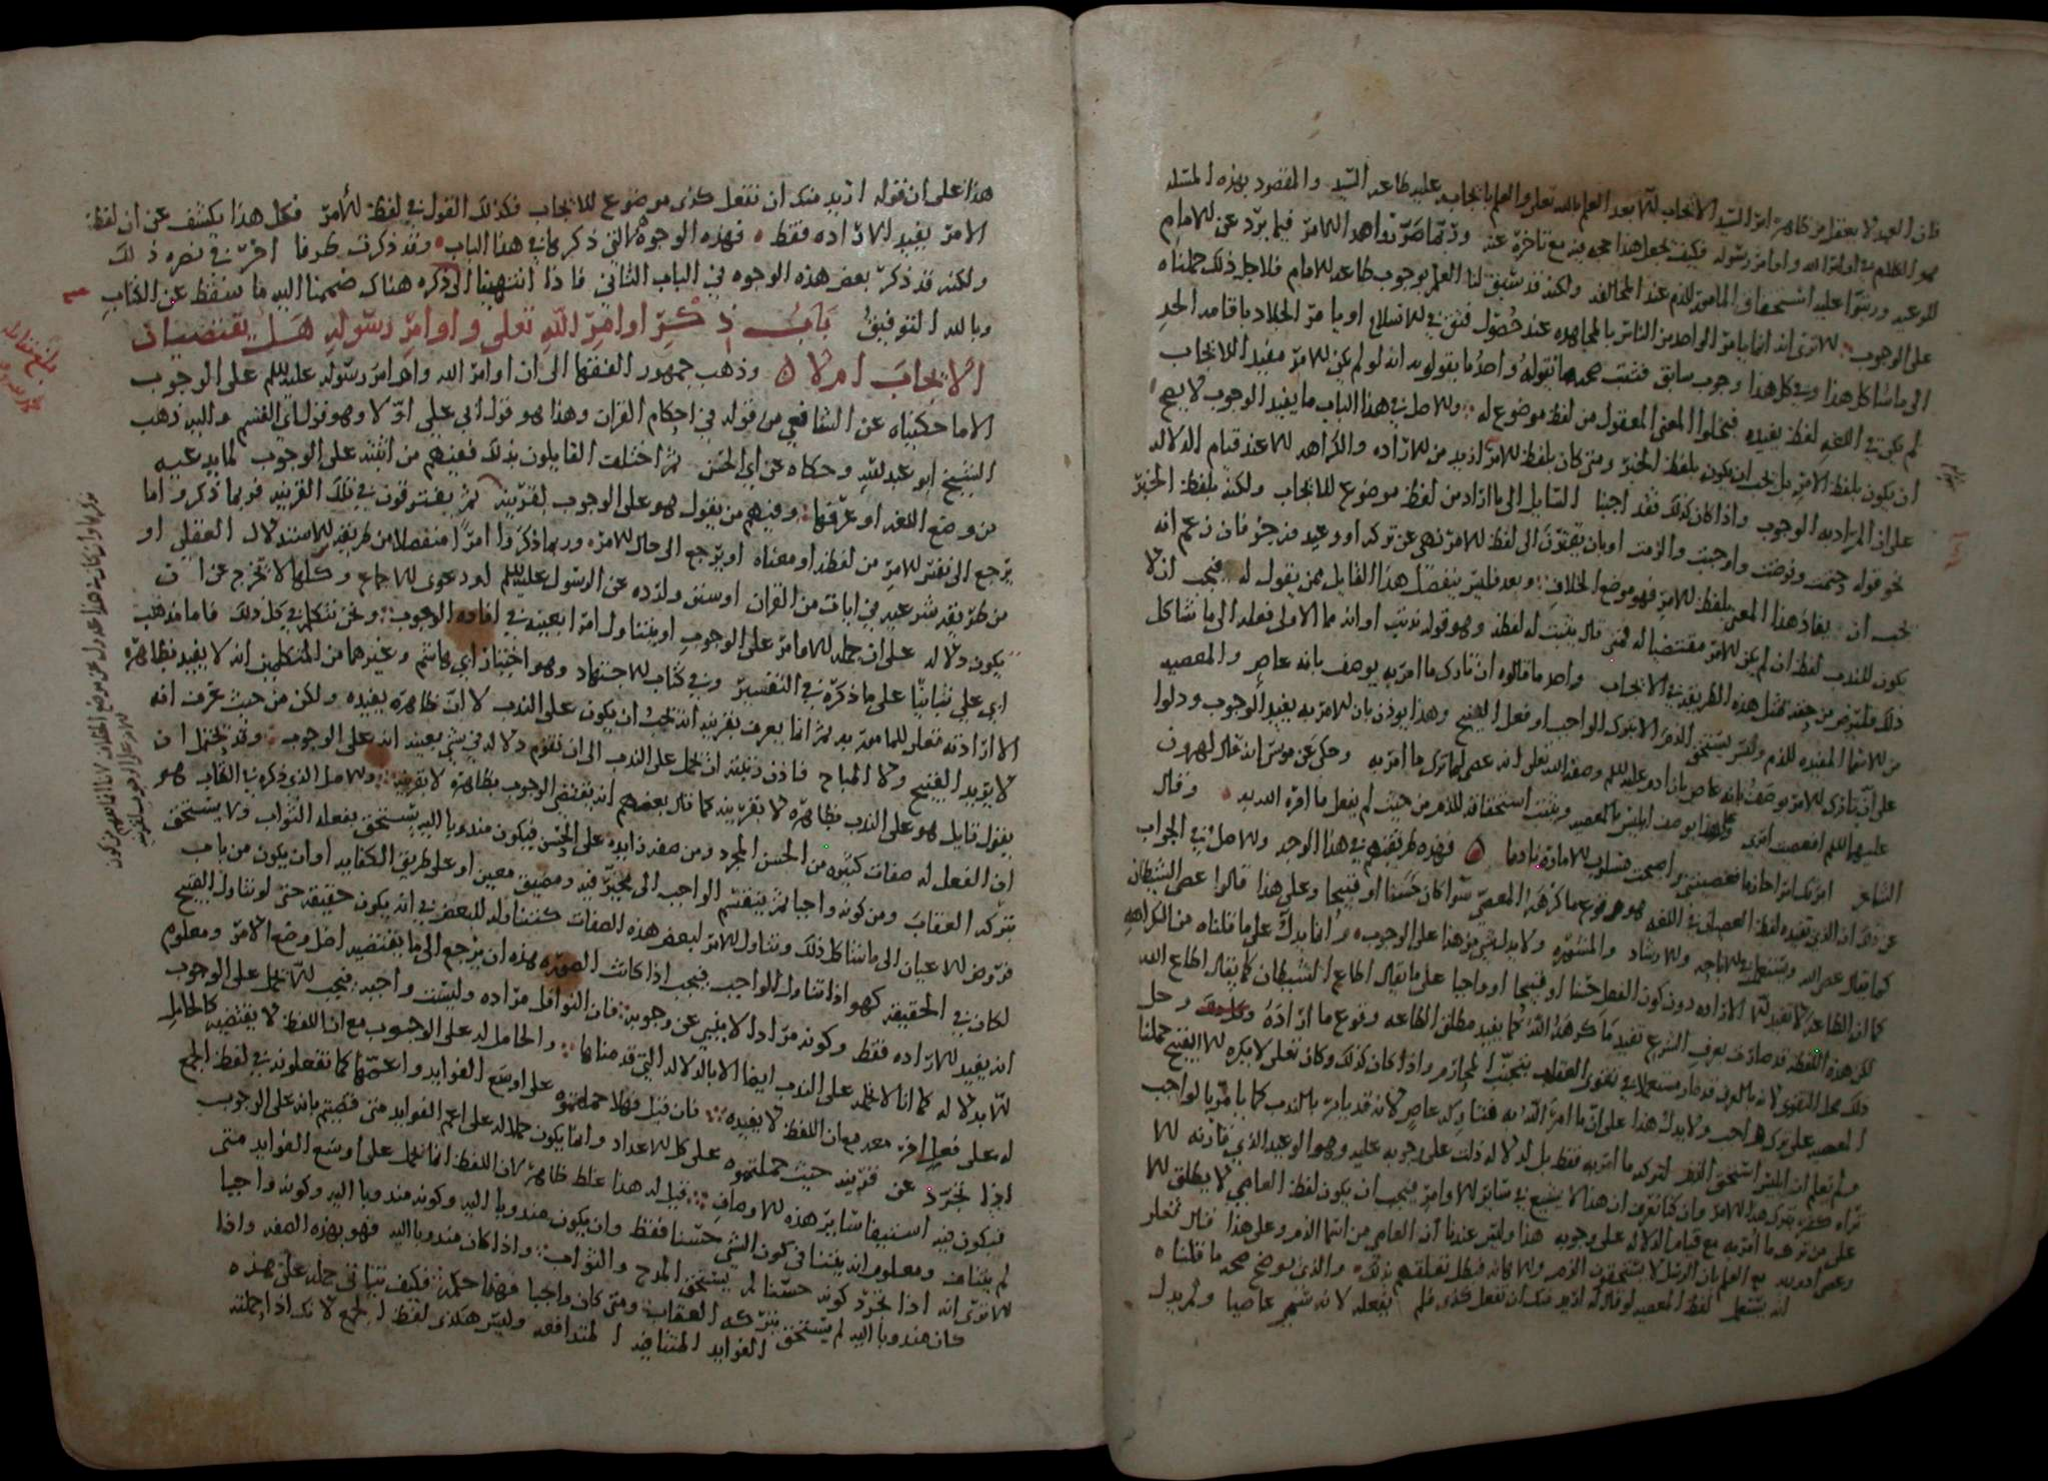 فان العبد لا يعقل من ظاهر امر السيد الايجاب للا بعد العلم بالله تعلى والعلم بايجاب عليه طاعه السيد والمقصود بهذه المسله
هو الكلام في اوامر الله واوامر رسوله فكيف نجعل هذا حجه فيه مع تاخره عنه وربما ضربوا هذا الامر فيما يرد عن الامام
للوعيد ورتبوا عليه استحقاق المامور للذم عند المخالفه ولكنه قد سبق لنا العلم بوجوب طاعه الامام فلاجل ذلك حملناه
على الوجوب الا ترى انه انما يامر الواحد من الناس بالمجاهره عند حصول فتق في الاسلام او يامر الجلاد باقامه الحد
الى ما شاكل هذا وفي كل هذا وجوب سابق فثبت صحه ما نقوله واحد ما يقولونه انه لو لم يكن الامر مفيدا للايجاب
لم يكن في اللغه لفظ يفيده فيخلوا المعنى المعقول من لفظ موضوع له والاصل في هذا الباب ما يفيد الوجوب لا يصح
ان يكون بلفظ الامر بل يجب ان يكون بلفظ الخبر ومتى كان بلفظ الامر اريد من الاراده والكراهه للا عند قيام الدلاله
على ان المراد به الوجوب واذا كان كذلك فقد اجبنا السايل الى ما اراد من لفظ موضوع للايجاب ولكنه بلفظ الخبر
نحو قوله حتمت وفرضت واوجبت والزمت او بان يقترن الى لفظ الامر نهي عن تركه او وعيد وزجر فان زعم انه
يجب ان يفاد هذا المعنى بلفظ الامر فهو موضع الخلاف وبعد فليس ينفصل هذا القايل ممن يقول له فيجب ان لا
يكون للندب لفظ ان لم يكن الامر مقتضيا له فمتى قال يثبت له لفظ وهو قوله ندبت او انه مما الاولى فعله الى ما شاكل
ذلك فلنرض من جهته بمثل هذه الطريقه في الايجاب واحد ما قالوه ان تارك ما امر به يوصف بانه عاص والمعصيه
من الاسما المفيده للذم وليس يستحق الذم الا بترك الواجب او فعل القبيح وهذا يوذن بان الامر به يفيد الوجوب ودلوا
على ان تارك الامر يوصف بانه عاص بان ادم عليه السلم وصفه الله تعلى انه عصى لما ترك ما امر به وحكى عن موسى انه قال لهرون
عليهما السلم افعصيت امري وكذا يوصف ابليس بالمعصيه ويثبت استحقاقه للذم من حيث لم يفعل ما امره الله به وقال
الشاعر امرتك امرا حازما فعصيتني واصبحت مسلوب الاماره نادما فهذه طريقتهم في هذا الوجه والاصل في الجواب
عن ذلك ان الذي تفيده لفظ العصيان في اللغه هو وقوع ما كرهه المعصي سوا كان حسنا او قبيحا وعلى هذا قالوا عصى الشيطان
كما يقال عصى الله ويستعمل في الاباحه والارشاد والمشوره ولا يدل شي من هذا على الوجوب وانما يدل على ما قلناه من الكراهه
كما ان الطاعه لا تفيد للا الاراده دون كون الفعل حسنا او قبيحا او واجبا على ما يقال اطاع الشيطان كما يقال اطاع الله
لكن هذه اللفظه قد صارت بعرف الشرع تفيد ما كرهه الله كما يفيد مطلق الطاعه وقوع ما اراده وحل
ذلك محل التقوى لانه بالعرف قد صار مستعملا في تقوى العقاب بتجنب المحارم واذا كان كذلك وكان تعلى لا يكره للا القبيح حملنا
المعصيه على ترك واجب ولا يدل هذا على ان ما امر الله به فتاركه عاص لانه قد يامر بالندب كما يامر بالواجب
ولم نعلم ان ابليس استحق الذم لتركه ما امر به فقط بل لدلاله دلت على وجوبه عليه وهو الوعيد الذي قارنه للا
تراه كفره بترك هذا الامر وان كنا نعرف ان هذا لا يشيع في ساير الاوامر فيجب ان يكون لفظ العاصي لا يطلق للا
على من ترك ما امر به مع قيام الدلاله على وجوبه هذا وليس عندنا ان العاصي من اسما الذم وعلى هذا قال تعلى
وعصى ادم ربه مع العلم بان الرسل لا يستحقون الذم ولا كانه فبطل تعلقهم بذلك والذي يوضح صحه ما قلناه
انه يستعمل لفظ المعصيه لو قال له اريد منك ان تفعل كذى فلم يفعله لانه سمي عاصيا ولم يدل
هذا على ان قوله اريد منك ان تفعل كذى موضوع للايجاب فكذلك القول في لفظ الامر فكل هذا يكشف عن ان لفظ
الامر يفيد الاراده فقط فهذه الوجوه التي ذكرها في هذا الباب وقد ذكرت طرفا اخر في نصره ذلك
ولكنه قد ذكر بعض هذه الوجوه في الباب الثاني فاذا انتهينا الى ذكره هناك ضممنا اليه ما سقط عن الكتاب
وبالله التوفيق باب ذكر اوامر الله تعلى واوامر رسوله هل يقتضيان
الايجاب ام لا وذهب جمهور الفقها الى ان اوامر الله واوامر رسوله عليه السلم على الوجوب
الا ما حكيناه عن الشافعي من قوله في احكام القران وهذا هو قول ابي علي اولا وهو قول ابي القسم واليه ذهب
الشيخ ابو عبد الله وحكاه عن ابي الحسن ثم اختلف القايلون بذلك فمنهم من اثبته على الوجوب لما يدعيه
من وضع اللغه او عرفها ومنهم من يقول هو على الوجوب لقرينه ثم يفترقون في تلك القرينه فربما ذكروا ما
يرجع الى نفس الامر من لفظه او معناه او يرجع الى حال الامر وربما ذكروا امرا منفصلا من طريقه الاستدلال العقلي او
من طريقه شرعيه في ايات من القران او سنن وارده عن الرسول عليه السلم او دعوى الاجماع وكلها لا تخرج عن ان
يكون دلاله على ان جمله الاوامر على الوجوب او يتناول امرا بعينه في افاده الوجوب ونحن نتكلم في كل ذلك فاما مذهب
ابي علي ثانيا على ما ذكره في التفسير وفي كتاب الاجتهاد وهو اختيار ابي هاشم وغيرهما من المتكلمين انه لا يفيد بظاهره
الا ارادته تعلى للمامور به ثم انما يعرف بقرينه انه يجب ان يكون على الندب لا ان ظاهره يفيده ولكن من حيث عرف انه
لا يريد القبيح ولا المباح فاذن رتبته ان يحمل على الندب الى ان تقوم دلاله في شي بعينه انه على الوجوب وقد يحتمل ان
يقول قايل هو على الندب بظاهره لا بقرينه كما قال بعضهم انه يقتضي الوجوب بظاهره لا بقرينه والاصل الذي ذكره في الكتاب هو
ان الفعل له صفات كثيره من الحسن المجرد ومن صفه زايده على الحسن فيكون مندوبا اليه يستحق بفعله الثواب ولا يستحق
بتركه العقاب ومن كونه واجبا ثم ينقسم الواجب الى مخير فيه ومضيق معين او على طريق الكفايه او ان يكون من باب
فروض الاعيان الى ما شاكل ذلك وتناول الامر لبعض هذه الصفات كتناوله للبعض في انه يكون حقيقه حتى لو تناول القبيح
لكان في الحقيقه كهو اذا تناول الواجب فيجب اذا كانت الصوره هذه ان يرجع الى ما يقتضيه اصل وضع الامر ومعلوم
انه يفيد الاراده فقط وكونه مرادا لا ينبي عن وجوبه فان النوافل مراده وليست واجبه فيجب للا يحمل على الوجوب
للا بدلاله كما انا لا نحمله على الندب ايضا الا بالدلاله التي قدمناها والحامل له على الوجوب مع ان اللفظ لا يقتضيه كالحامل
له على فعل اخر معه مع ان اللفظ لا يفيده فان قيل فهلا حملتموه على اوسع الفوايد واعمها كما تفعلونه في لفظ الجمع
اذا تجرد عن قرينه حيث حملتموه على كل الاعداد وانما يكون حملا له على اعم الفوايد متى قضيتم بانه على الوجوب
فيكون فيه استيفا ساير هذه الاوصاف قيل له هذا غلط ظاهر لان اللفظ انما يحمل على اوسع الفوايد متى
لم يتناف ومعلوم انه يتنافى كون الشي حسنا فقط وان يكون مندوبا اليه وكونه مندوبا اليه وكونه واجبا
الا ترى انه اذا تجرد كونه حسنا لم يستحق المدح والثواب واذا كان مندوبا اليه فهو بهذه الصفه واذا
كان مندوبا اليه لم يستحق بتركه العقاب ومتى كان واجبا فهذا حكمه فكيف يتاتى حمله على هذه
الفوايد المتنافيه المتدافعه وليس هكذى لفظ الجمع لانك اذا حملته